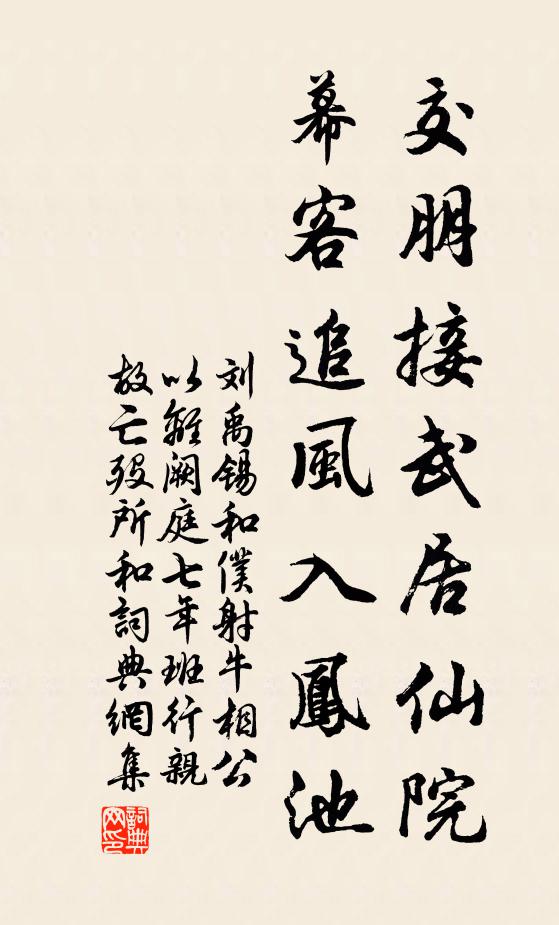 交朋接武居仙院
幕客追風入鳳池
刘禹锡和僕射牛相公
以離阙庭七年班行親
故亡殁所和詞典網集
詞典网印